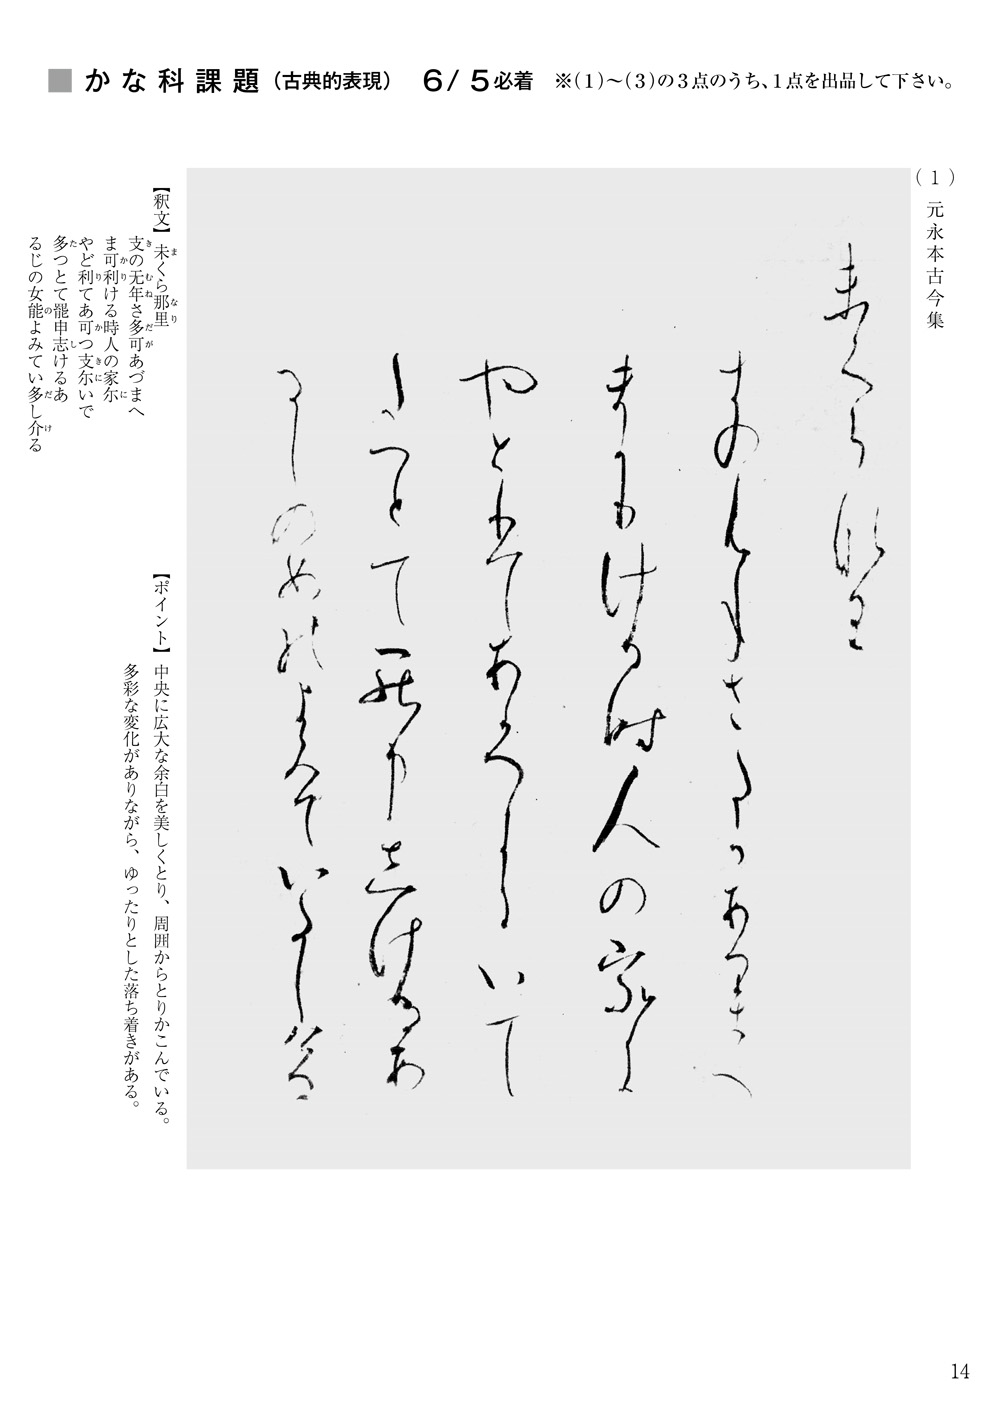 ■かな科課題（古典的表現）　6/5必着　※（1）〜（3）の3点のうち、1点を出品して下さい。
（1）元永本古今集
【釈文】未くら那里
支の无年さ多可あづまへ
ま可利ける時人の家尓
やど利てあ可つ支尓いで
多つとて罷申志けるあ
るじの女能よみてい多し介る
【ポイント】中央に広大な余白を美しくとり、周囲からとりかこんでいる。
多彩な変化がありながら、ゆったりとした落ち着きがある。
14